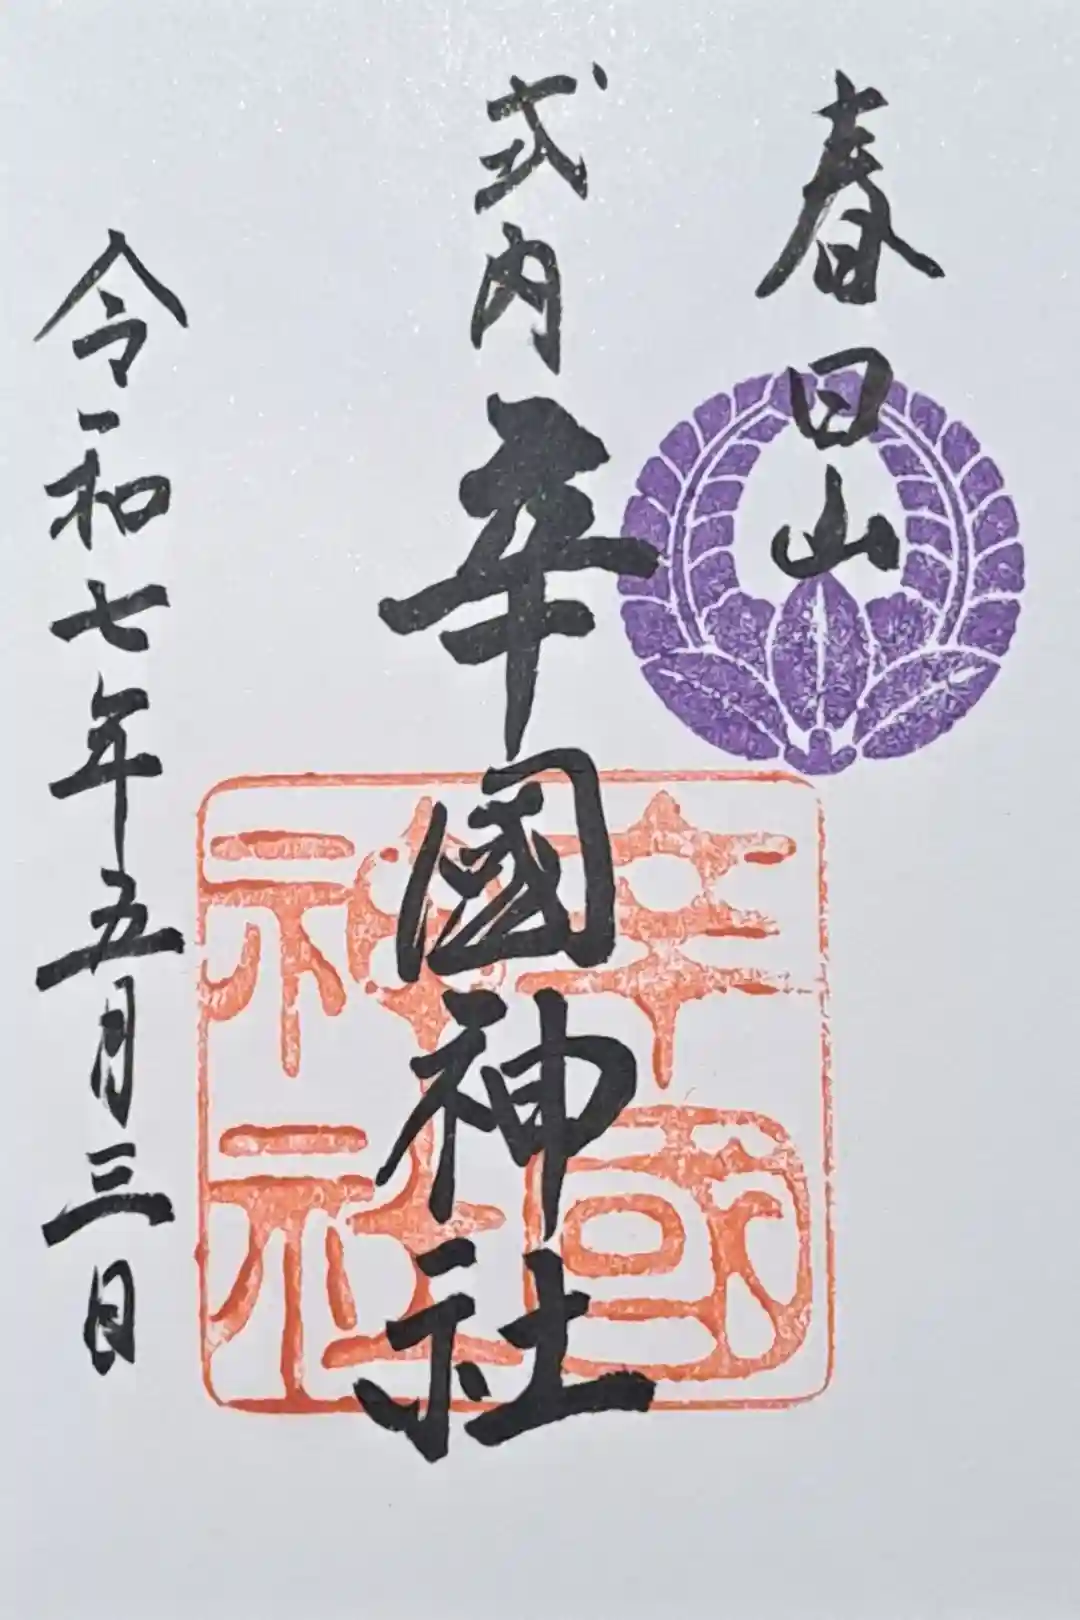 春日山
式内 辛國神社
令和七年五月三日
辛國神社